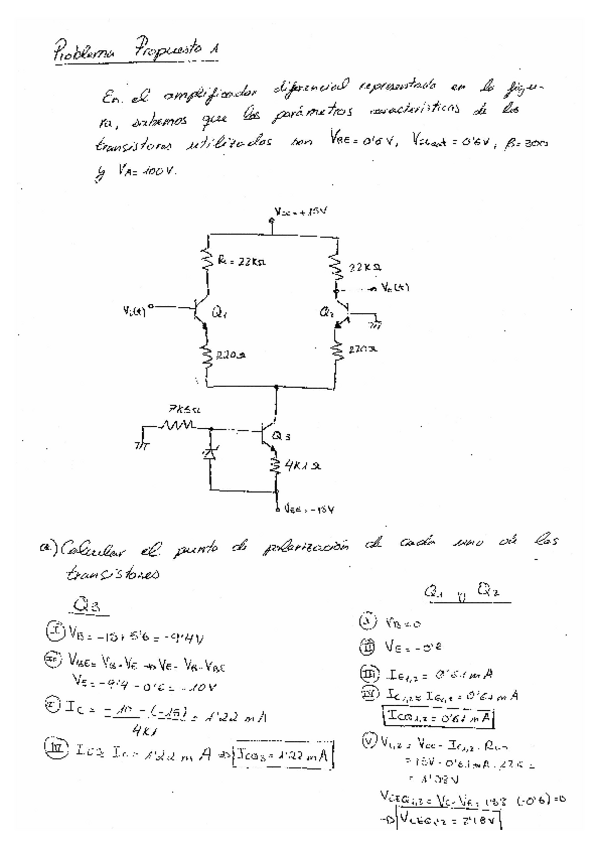 Problema Propuesto 1
En el amplificador diferencial representado en la figu-
ra, sabemos que los parámetros característicos de los
transistores utilizados son VBE = 0'6V, VCEsat = 0'6V, β=300
y VA= 100V.
Vcc = +15V
Rc = 22KΩ
22KΩ
Vo(t)
Vi(t)
Q1
Q2
220Ω
220Ω
7K5Ω
Q3
4K1Ω
VEE = -15V
a) Calcular el punto de polarización de cada uno de los
transistores
Q3
Q1 y Q2
I VB = -15+5'6 = -9'4V
I VB=0
II VBE = VB - VE → VE = VB - VBE
VE = -9'4 - 0'6 = -10V
II VE = -0'6
IC = -10 - (-15) / 4K1 = 1'22 mA
III IE1,2 = 0'61 mA
IV IC1,2 ≈ IE1,2 = 0'61 mA
ICQ1,2 = 0'61 mA
IV IC ≈ IE = 1'22 mA → ICQ3 = 1'22 mA
V V1,2 = Vcc - IC1,2 ·
= 15V - 0'61mA ·
VCEQ1,2 = VC - VE = (-0'6) =
→ VCEQ1,2 = 2'18V